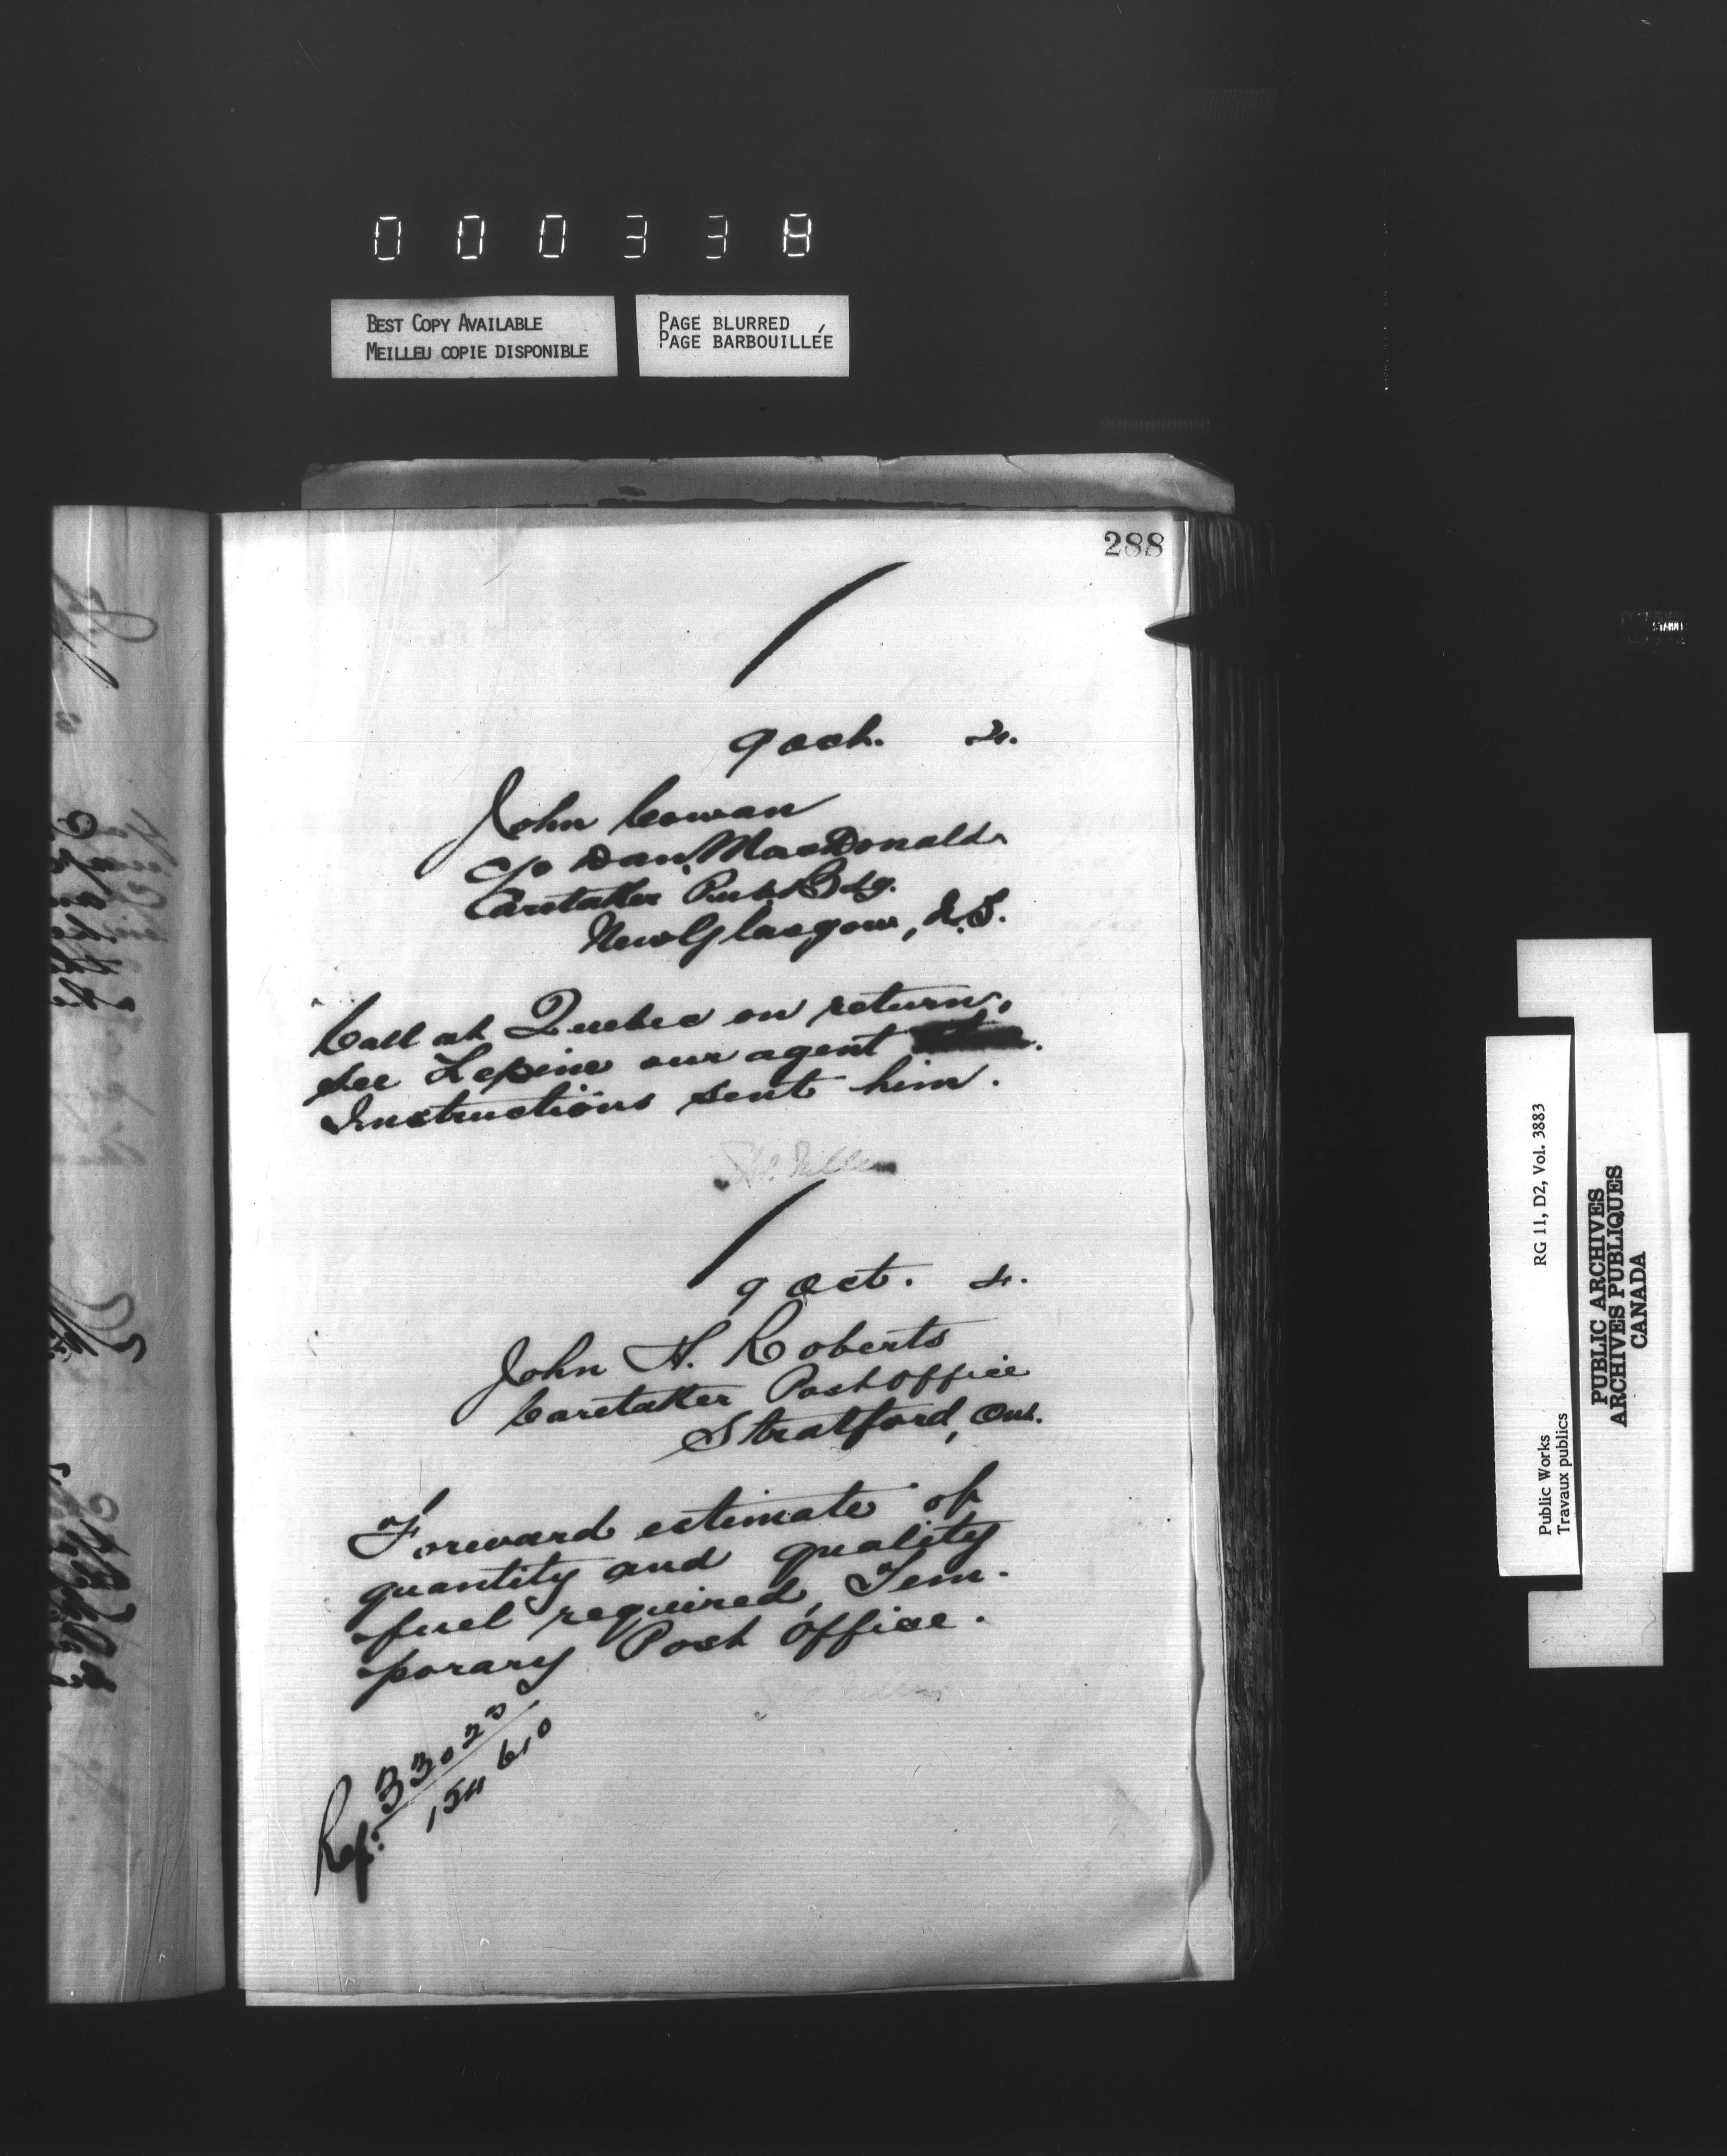 000338
BEST COPY AVAILABLE
MEILLEU COPIE DISPONIBLE
PAGE BLURRED
PAGE BARBOUILLÉE
288
9 Oct. 4.
John Cowan
c/o Dan MacDonald
Caretaker Pub. Bdg.
New Glasgow, N.S.
Call at Quebec on return,
see Lepine our agent
Instructions sent him.
9 Oct. 4.
John H. Roberts
Caretaker Post Office
Stratford, Ont.
Forward estimate of
quantity and quality
fuel required, Tem-
porary Post Office.
Ref. 33023
154610
Public Works
Travaux publics
RG 11, D2, Vol. 3883
PUBLIC ARCHIVES
ARCHIVES PUBLIQUES
CANADA